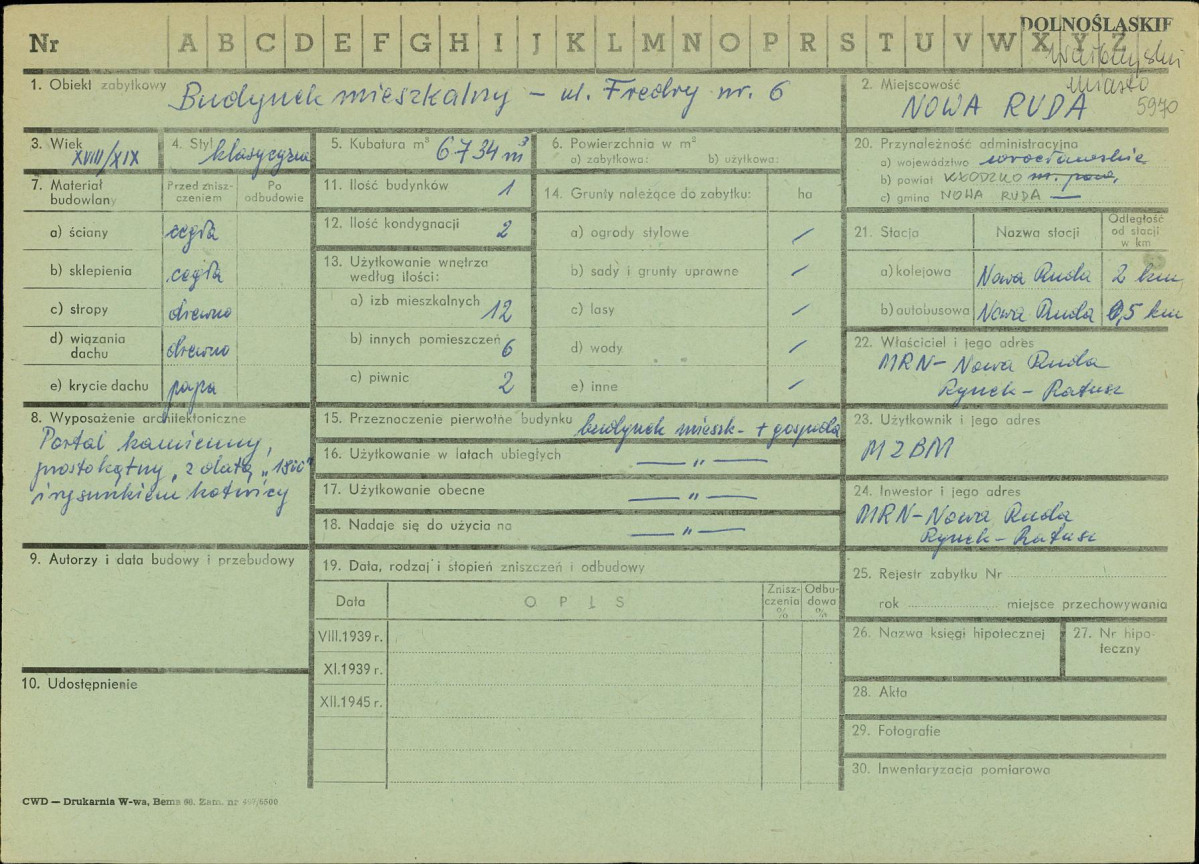 DOLNOŚLĄSKIE
Wałbrzyski
miasto
5970
Nr A B C D E F G H I J K L M N O P R S T U V W X Y Z
1. Obiekt zabytkowy Budynek mieszkalny – ul. Fredry nr. 6
2. Miejscowość
NOWA RUDA
3. Wiek
XVIII/XIX
4. Styl klasycyzm
5. Kubatura m³ 6734 m³
6. Powierzchnia w m²
a) zabytkowa: b) użytkowa:
20. Przynależność administracyjna
a) województwo wrocławskie
b) powiat KŁODZKO
c) gmina NOWA RUDA —
7. Materiał budowlany
Przed zniszczeniem
Po odbudowie
a) ściany cegła
b) sklepienia cegła
c) stropy drewno
d) wiązania dachu drewno
e) krycie dachu papa
11. Ilość budynków 1
12. Ilość kondygnacji 2
13. Użytkowanie wnętrza
według ilości:
a) izb mieszkalnych 12
b) innych pomieszczeń 6
c) piwnic 2
14. Grunty należące do zabytku: ha
a) ogrody stylowe /
b) sady i grunty uprawne /
c) lasy /
d) wody /
e) inne /
21. Stacja Nazwa stacji Odległość od stacji w km
a) kolejowa Nowa Ruda 2 km
b) autobusowa Nowa Ruda 0,5 km
22. Właściciel i jego adres
MRN – Nowa Ruda
Rynek – Ratusz
8. Wyposażenie architektoniczne
Portal kamienny,
prostokątny, z datą „1800"
i rysunkiem kotwicy
15. Przeznaczenie pierwotne budynku budynek mieszk. + gospoda
16. Użytkowanie w latach ubiegłych — „ —
17. Użytkowanie obecne — „ —
18. Nadaje się do użycia na — „ —
23. Użytkownik i jego adres
MZBM
24. Inwestor i jego adres
MRN – Nowa Ruda
Rynek – Ratusz
9. Autorzy i data budowy i przebudowy
19. Data, rodzaj i stopień zniszczeń i odbudowy
Data OPIS Zniszczenia % Odbudowa %
VIII.1939 r.
XI.1939 r.
XII.1945 r.
25. Rejestr zabytku Nr
rok miejsce przechowywania
26. Nazwa księgi hipotecznej
27. Nr hipoteczny
10. Udostępnienie
28. Akta
29. Fotografie
30. Inwentaryzacja pomiarowa
CWD — Drukarnia W-wa, Bema 66. Zam. nr